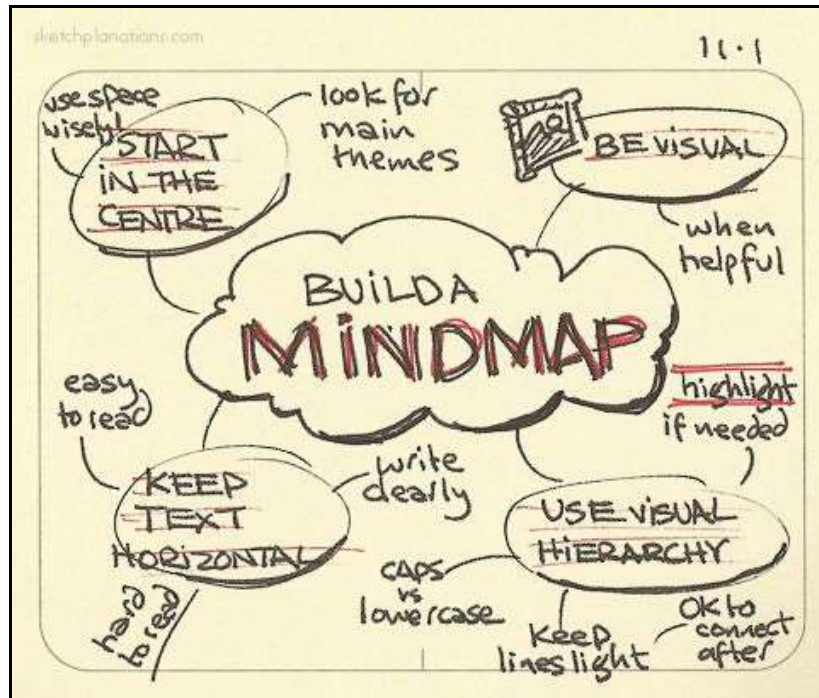 sketchplanations.com
11.1
use space
wisely!
START
IN THE
CENTRE
look for
main
themes
BE VISUAL
when
helpful
BUILD A
MINDMAP
easy
to read
KEEP
TEXT
HORIZONTAL
write
clearly
hard
to read
highlight
if needed
USE VISUAL
HIERARCHY
CAPS
vs
lowercase
keep
lines light
OK to
connect
after